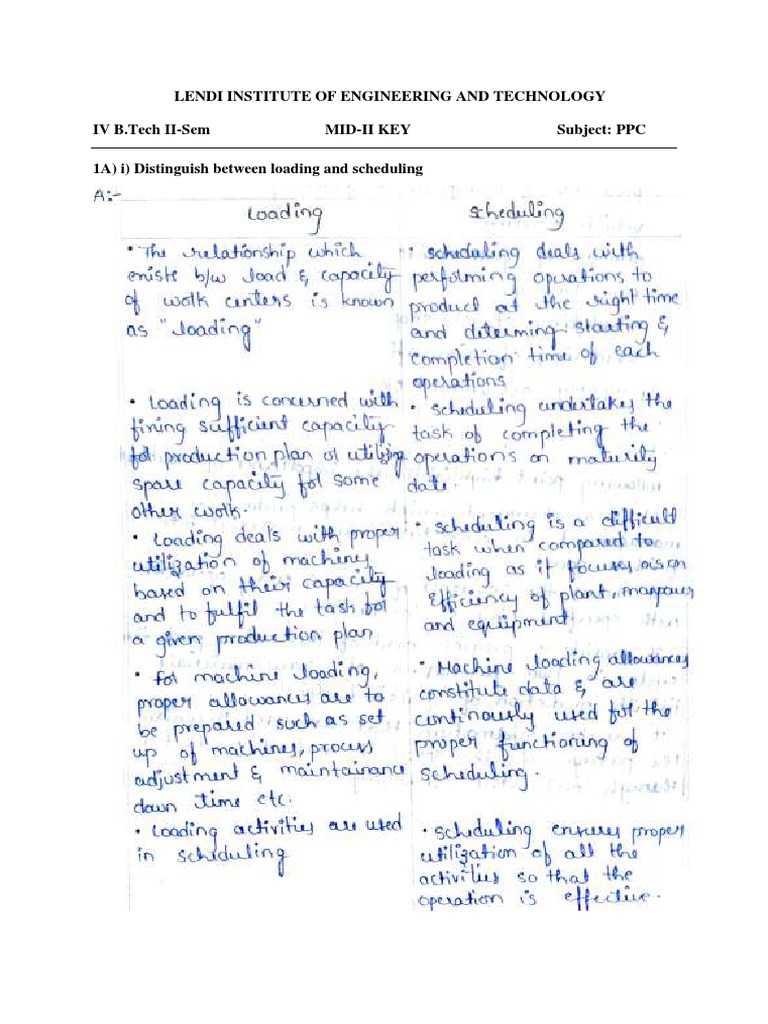 LENDI INSTITUTE OF ENGINEERING AND TECHNOLOGY
IV B.Tech II-Sem MID-II KEY Subject: PPC
1A) i) Distinguish between loading and scheduling
A:-
Loading
• The relationship which
exists b/w load & capacity
of work centers is known
as "loading"
• Loading is concerned with
fining sufficient capacity
for production plan or utilizing
spare capacity for some
other work.
• Loading deals with proper
utilization of machines
based on their capacity
and to fulfil the task for
a given production plan
• For machine loading,
proper allowances are to
be prepared such as set
up of machines, process
adjustment & maintainance
down time etc.
• Loading activities are used
in scheduling
Scheduling
• scheduling deals with
performing operations, to
product at the right time
and determing starting &
completion time of each
operations
• scheduling undertakes the
task of completing the
operations on maturity
date.
• scheduling is a difficult
task when compared to
loading as it focuses on
Efficiency of plant, manpower
and equipment
• Machine loading allowances
constitute data & are
continously used for the
proper functioning of
scheduling.
• scheduling ensures proper
utilization of all the
activities so that the
operation is effective.